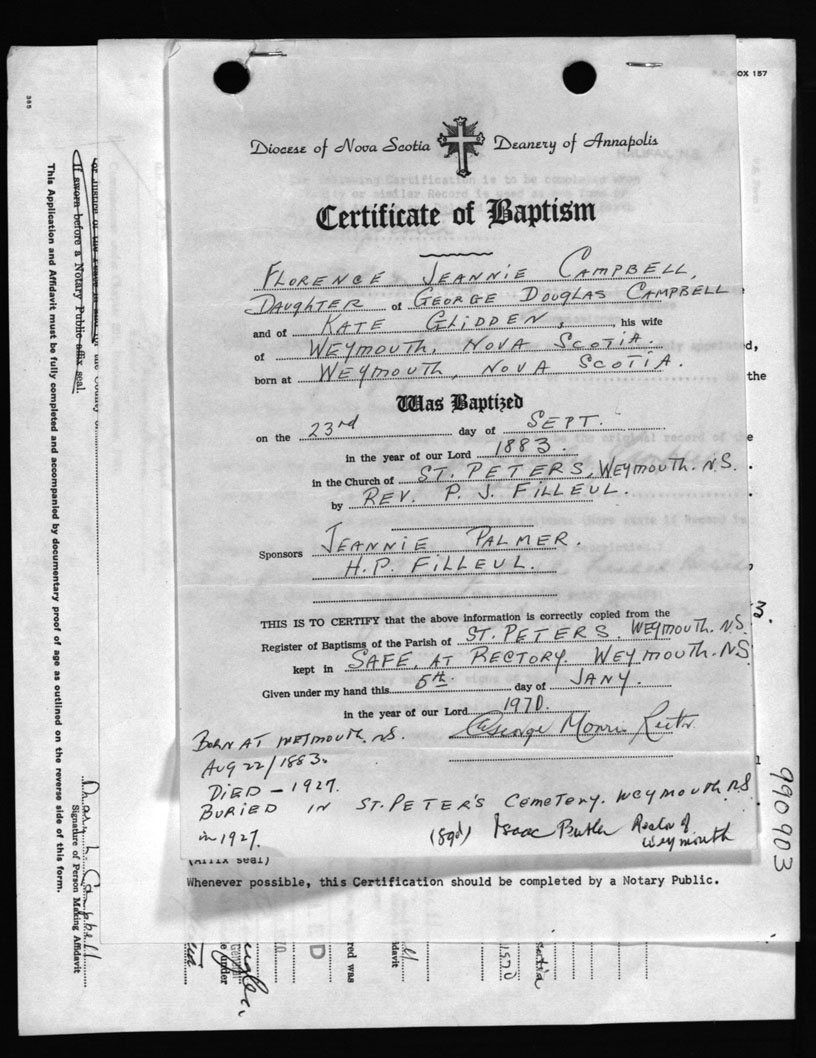 OX 157
385
Diocese of Nova Scotia Deanery of Annapolis
HALIFAX, N.S.
Certificate of Baptism
FLORENCE JEANNIE CAMPBELL,
DAUGHTER of GEORGE DOUGLAS CAMPBELL
and of KATE GLIDDEN, his wife
of WEYMOUTH, NOVA SCOTIA.
born at WEYMOUTH, NOVA SCOTIA.
Was Baptized
on the 23rd day of SEPT.
in the year of our Lord 1883.
in the Church of ST. PETERS, WEYMOUTH. N.S.
by REV. P. J. FILLEUL.
Sponsors JEANNIE PALMER.
H. P. FILLEUL.
THIS IS TO CERTIFY that the above information is correctly copied from the
Register of Baptisms of the Parish of ST. PETERS, WEYMOUTH. N.S.
kept in SAFE, AT RECTORY. WEYMOUTH. N.S
Given under my hand this 5th day of JANY.
in the year of our Lord 1970.
George Morris Rector
BORN AT WEYMOUTH. N.S.
AUG 22/1883.
DIED - 1927.
BURIED IN ST. PETER'S CEMETERY. WEYMOUTH NS.
in 1927.
(sgd) Isaac Butler Rector of
Weymouth
(Affix seal)
Whenever possible, this Certification should be completed by a Notary Public.
990903
the County of
If sworn before a Notary Public affix seal.
This Application and Affidavit must be fully completed and accompanied by documentary proof of age as outlined on the reverse side of this form.
Campbell
Signature of Person Making Affidavit
under
General
ED
red was
davit
1970